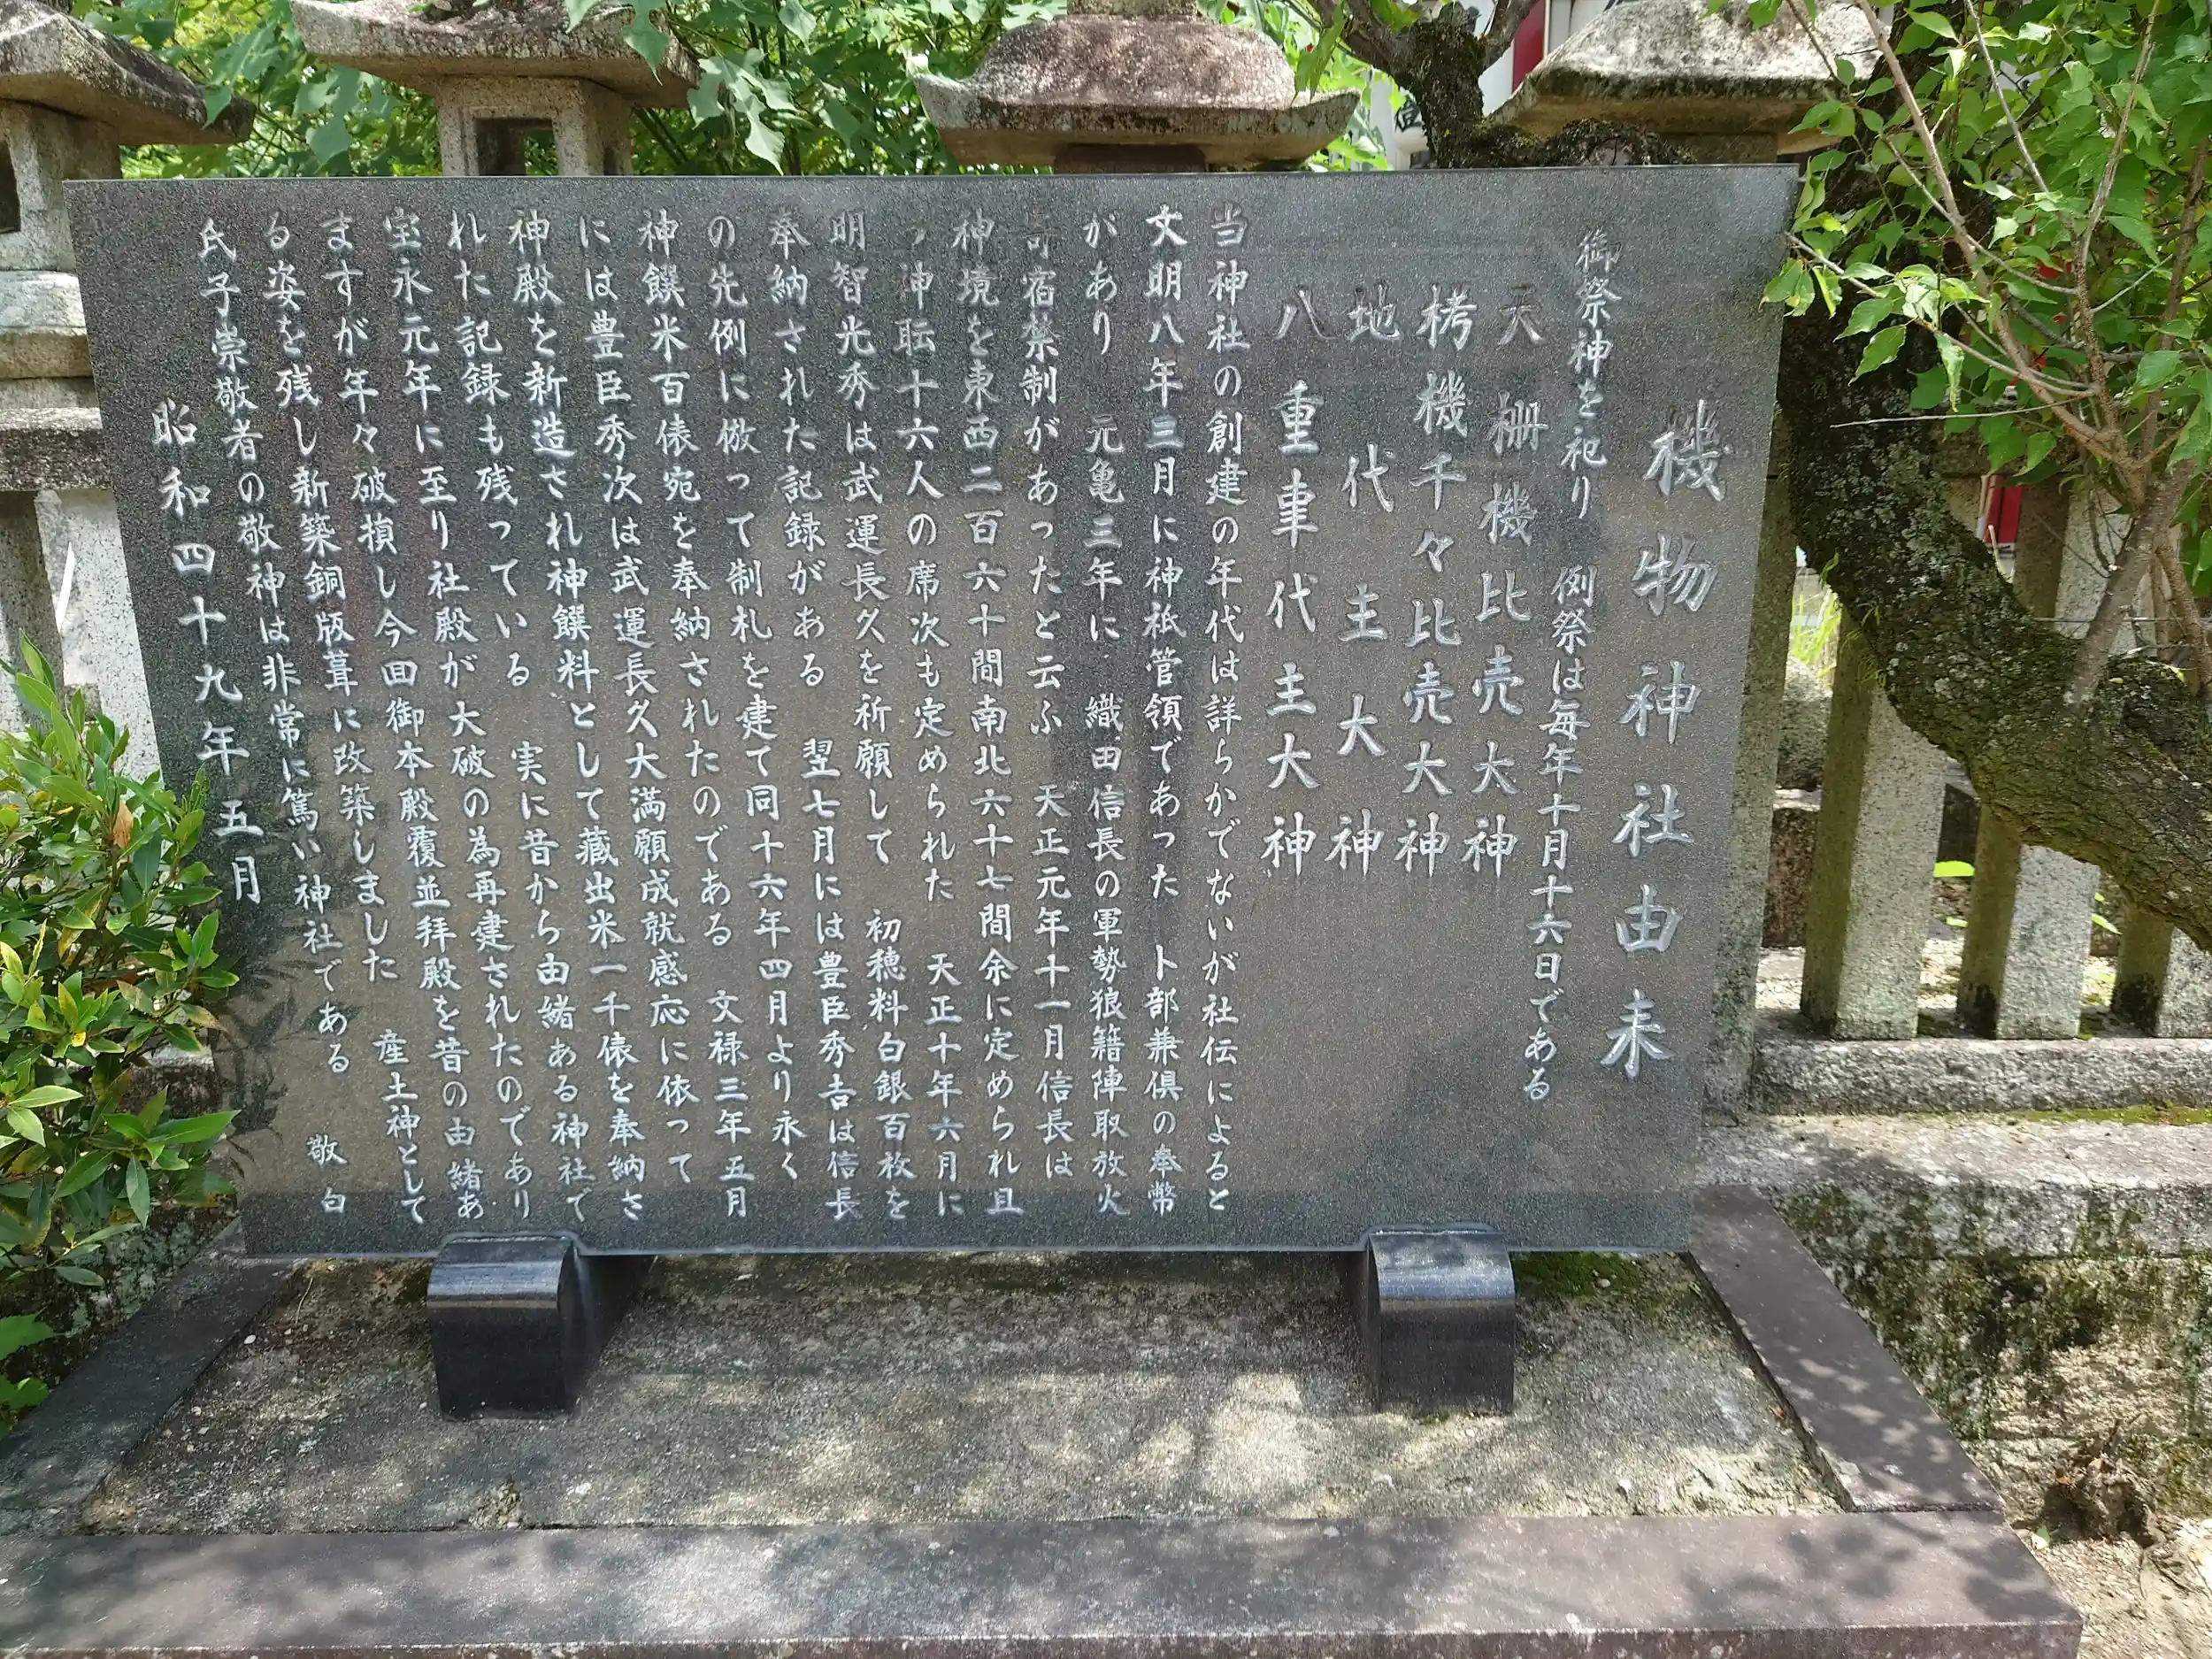 機物神社由来
御祭神を祀り 例祭は毎年十月十六日である
天棚機比売大神
栲機千々比売大神
地代主大神
八重事代主大神
当神社の創建の年代は詳らかでないが社伝によると
文明八年三月に神祇管領であった 卜部兼倶の奉幣
があり 元亀三年に 織田信長の軍勢狼籍陣取放火
寄宿禁制があったと云ふ 天正元年十一月信長は
神境を東西二百六十間南北六十七間余に定められ且
つ神耺十六人の席次も定められた 天正十年六月に
明智光秀は武運長久を祈願して 初穂料白銀百枚を
奉納された記録がある 翌七月には豊臣秀吉は信長
の先例に倣って制札を建て同十六年四月より永く
神饌米百俵宛を奉納されたのである 文禄三年五月
には豊臣秀次は武運長久大満願成就感応に依って
神殿を新造され神饌料として蔵出米一千俵を奉納さ
れた記録も残っている 実に昔から由緒ある神社で
宝永元年に至り社殿が大破の為再建されたのであり
ますが年々破損し今回御本殿覆並拝殿を昔の由緒あ
る姿を残し新築銅版葺に改築しました 産土神として
氏子崇敬者の敬神は非常に篤い神社である 敬白
昭和四十九年五月